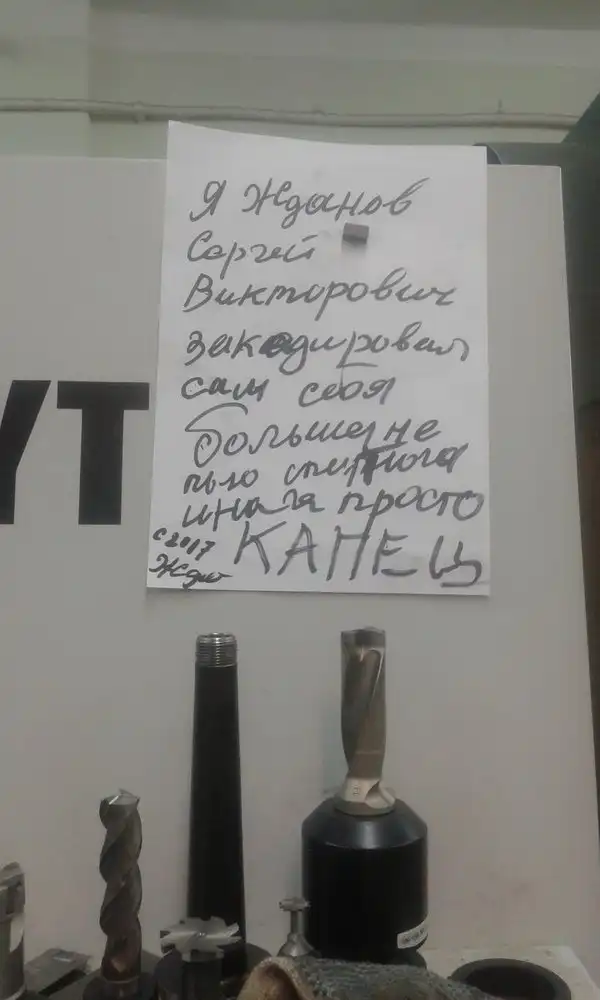 Я Жданов
Сергей
Викторович
закодировал
сам себя
больше не
пью спитного
иначя просто
КАПЕЦ
с 2017
YT